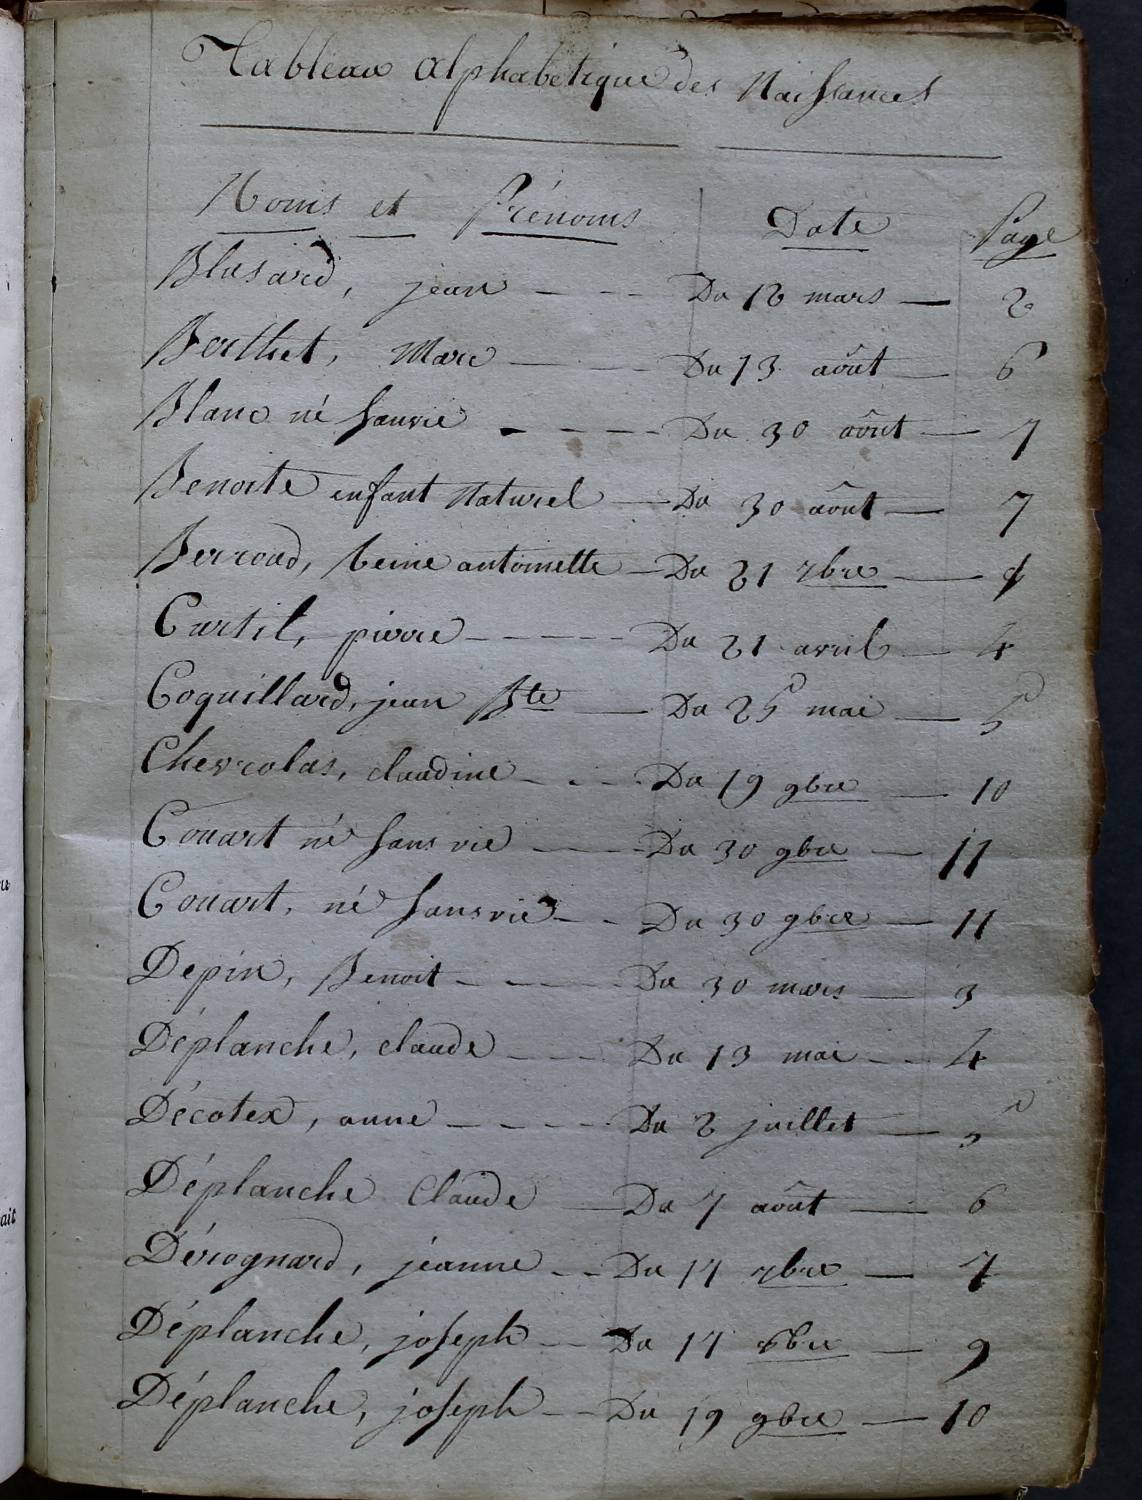 Tableau alphabétique des Naissances
Noms et Prénoms Date Page
Blasard, jean Du 12 mars 2
Berthet, Marc Du 13 août 6
Blanc né sanvie Du 30 août 7
Benoite enfant Naturel Du 30 août 7
Berroud, Reine antoinette Du 21 7bre
Curtil, pierre Du 21 avril 4
Coquillard, jean Bte Du 25 mai 5
Chevrolas, claudine Du 19 9bre 10
Couart né sans vie Du 30 9bre 11
Couart, né sans vie Du 30 9bre 11
Depin, Benoit Du 30 mars 3
Déplanche, claude Du 13 mai 4
Décotex, anne Du 2 juillet 5
Déplanche Claude Du 7 août 6
Dérognard, jeanne Du 17 7bre 7
Déplanche, joseph Du 17 8bre 9
Déplanche, joseph Du 19 9bre 10